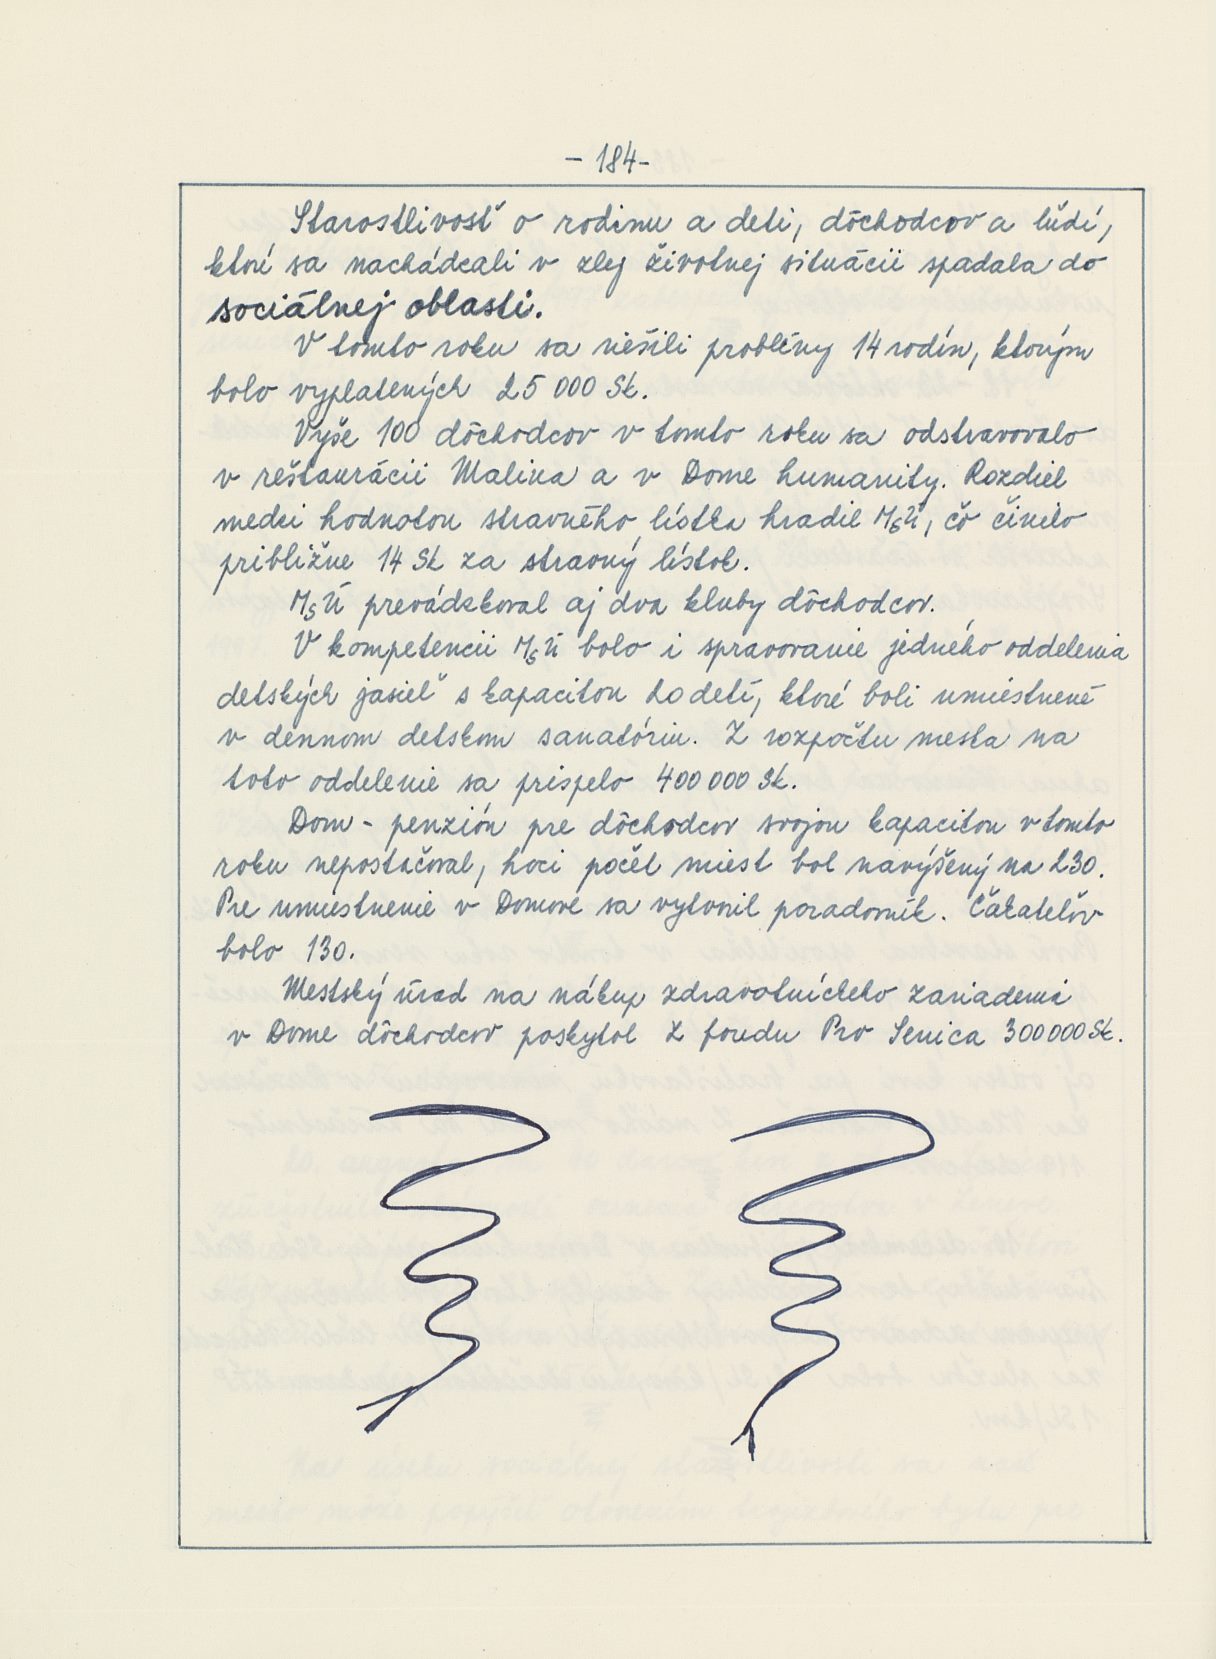 - 184-
Starostlivosť o rodinu a deti, dôchodcov a ľudí,
ktorí sa nachádzali v zlej životnej situácii spadala do
sociálnej oblasti.
V tomto roku sa riešili problémy 14 rodín, ktorým
bolo vyplatených 25 000 Sk.
Vyše 100 dôchodcov v tomto roku sa odstravovalo
v reštaurácii Malina a v Dome humanity. Rozdiel
medzi hodnotou stravného lístka hradil MsÚ, čo činilo
približne 14 Sk za stravný lístok.
MsÚ prevádzkoval aj dva kluby dôchodcov.
V kompetencii MsÚ bolo i spravovanie jedného oddelenia
detských jasieľ s kapacitou 20 detí, ktoré boli umiestnené
v dennom detskom sanatóriu. Z rozpočtu mesta na
toto oddelenie sa prispelo 400 000 Sk.
Dom - penzión pre dôchodcov svojou kapacitou v tomto
roku nepostačoval, hoci počet miest bol navýšený na 230.
Pre umiestnenie v Domove sa vytvoril poradovník. Čakateľov
bolo 130.
Mestský úrad na nákup zdravotníckeho zariadenia
v Dome dôchodcov poskytol z fondu Pro Senica 300 000 Sk.